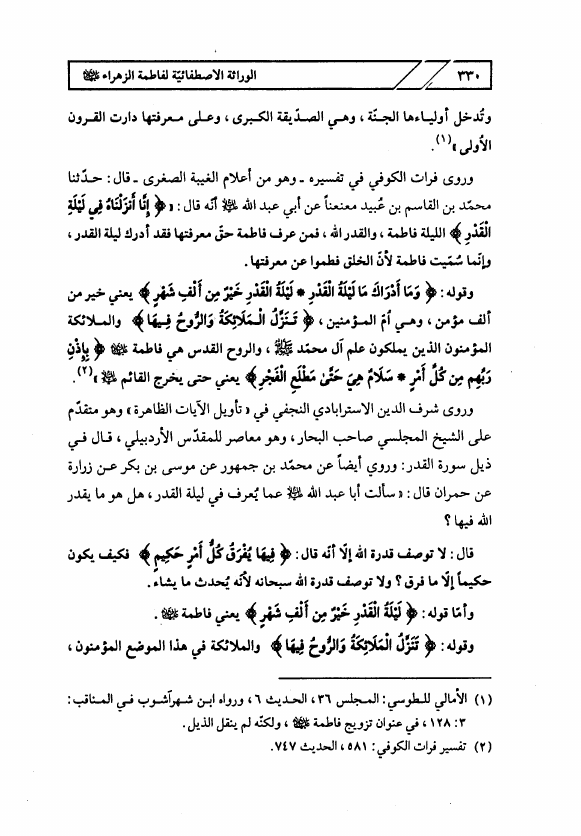 ٣٣٠ الوراثة الاصطفائيّة لفاطمة الزهراء ﷺ
وتُدخل أولياءها الجنّة ، وهي الصدّيقة الكبرى ، وعلى معرفتها دارت القرون
الأولى»(١).
وروى فرات الكوفي في تفسيره ـ وهو من أعلام الغيبة الصغرى ـ قال: حدّثنا
محمّد بن القاسم بن عُبيد معنعناً عن أبي عبد الله ﷺ أنّه قال: «﴿ إِنَّا أَنزَلْنَاهُ فِي لَيْلَةِ
الْقَدْرِ ﴾ الليلة فاطمة ، والقدر الله ، فمن عرف فاطمة حقّ معرفتها فقد أدرك ليلة القدر ،
وإنّما سُمّيت فاطمة لأنّ الخلق فطموا عن معرفتها.
وقوله: ﴿ وَمَا أَدْرَاكَ مَا لَيْلَةُ الْقَدْرِ * لَيْلَةُ الْقَدْرِ خَيْرٌ مِن أَلْفِ شَهْرٍ ﴾ يعني خير من
ألف مؤمن ، وهي أمّ المؤمنين ، ﴿ تَنَزَّلُ الْمَلَائِكَةُ وَالرُّوحُ فِيهَا ﴾ والملائكة
المؤمنون الذين يملكون علم آل محمّد ﷺ ، والروح القدس هي فاطمة ﷺ ﴿ بِإِذْنِ
رَبِّهِم مِن كُلِّ أَمْرٍ * سَلَامٌ هِيَ حَتَّىٰ مَطْلَعِ الْفَجْرِ ﴾ يعني حتى يخرج القائم ﷺ»(٢).
وروى شرف الدين الاسترابادي النجفي في «تأويل الآيات الظاهرة» وهو متقدّم
على الشيخ المجلسي صاحب البحار ، وهو معاصر للمقدّس الأردبيلي ، قال في
ذيل سورة القدر: وروي أيضاً عن محمّد بن جمهور عن موسى بن بكر عن زرارة
عن حمران قال: «سألت أبا عبد الله ﷺ عما يُعرف في ليلة القدر ، هل هو ما يقدر
الله فيها ؟
قال: لا توصف قدرة الله إلّا أنّه قال: ﴿ فِيهَا يُفْرَقُ كُلُّ أَمْرٍ حَكِيمٍ ﴾ فكيف يكون
حكيماً إلّا ما فرق ؟ ولا توصف قدرة الله سبحانه لأنّه يُحدث ما يشاء.
وأمّا قوله: ﴿ لَيْلَةُ الْقَدْرِ خَيْرٌ مِن أَلْفِ شَهْرٍ ﴾ يعني فاطمة ﷺ.
وقوله: ﴿ تَنَزَّلُ الْمَلَائِكَةُ وَالرُّوحُ فِيهَا ﴾ والملائكة في هذا الموضع المؤمنون ،
(١) الأمالي للطوسي: المجلس ٣٦ ، الحديث ٦ ، ورواه ابن شهرآشوب في المناقب:
٣: ١٢٨ ، في عنوان تزويج فاطمة ﷺ ، ولكنّه لم ينقل الذيل.
(٢) تفسير فرات الكوفي: ٥٨١ ، الحديث ٧٤٧.